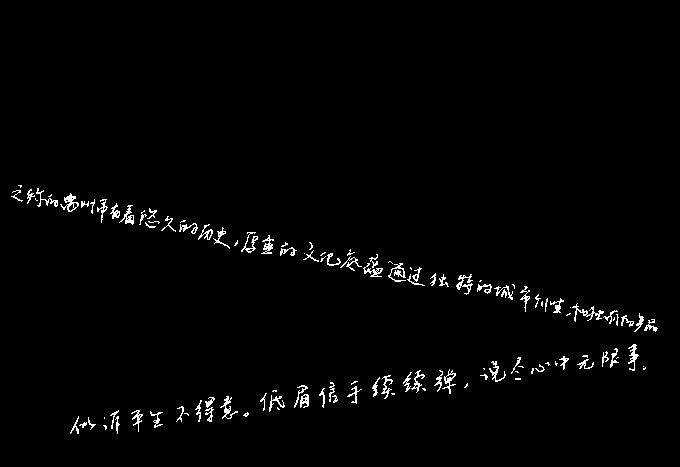 之称的惠州市有着悠久的历史,厚重的文化底蕴通过独特的城市创造,和独有的乡品
似诉平生不得意。低眉信手续续弹,说尽心中无限事.